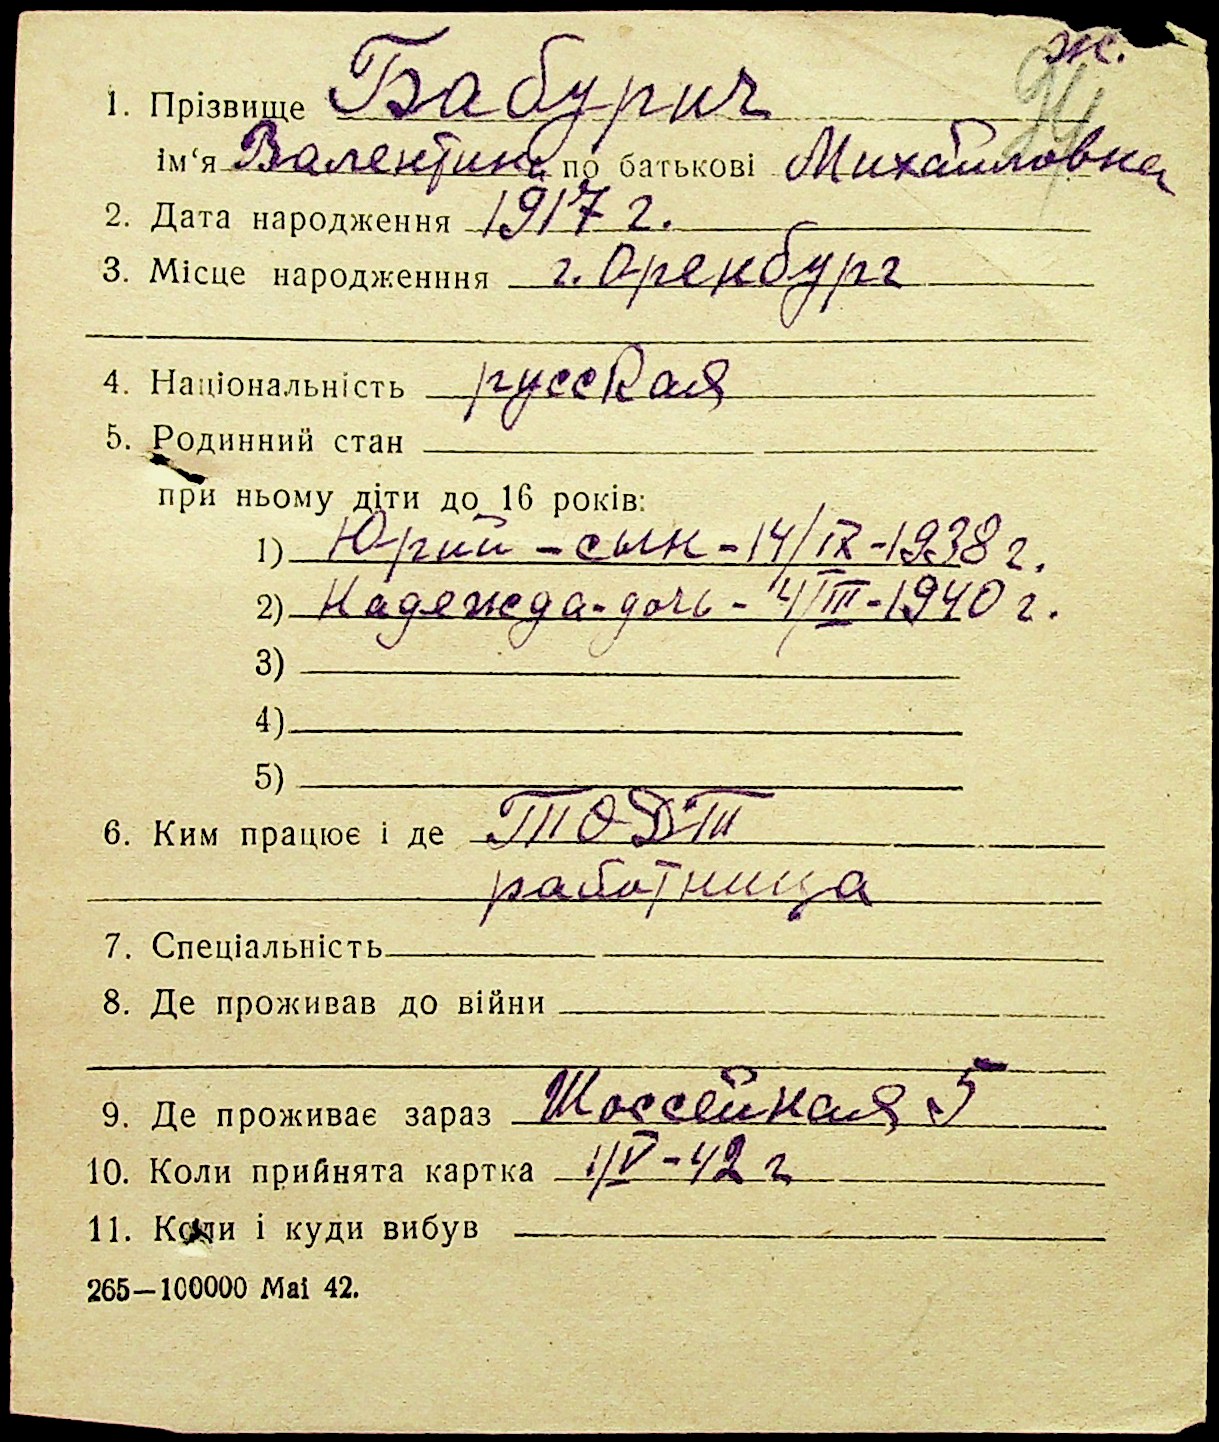 ж.
24
1. Прізвище Бабурич
ім‘я Валентина по батькові Михайловна
2. Дата народження 1917 г.
3. Місце народженння г. Оренбург
4. Національність русская
5. Родинний стан
при ньому діти до 16 років:
1) Юрий - сын - 14/IX - 1938 г.
2) Надежда - дочь - 4/III - 1940 г.
3)
4)
5)
6. Ким працює і де ТОДТ
работница
7. Спеціальність
8. Де проживав до війни
9. Де проживає зараз Шоссейная 5
10. Коли прийнята картка 1/V - 42 г
11. Коли і куди вибув
265—100000 Mai 42.